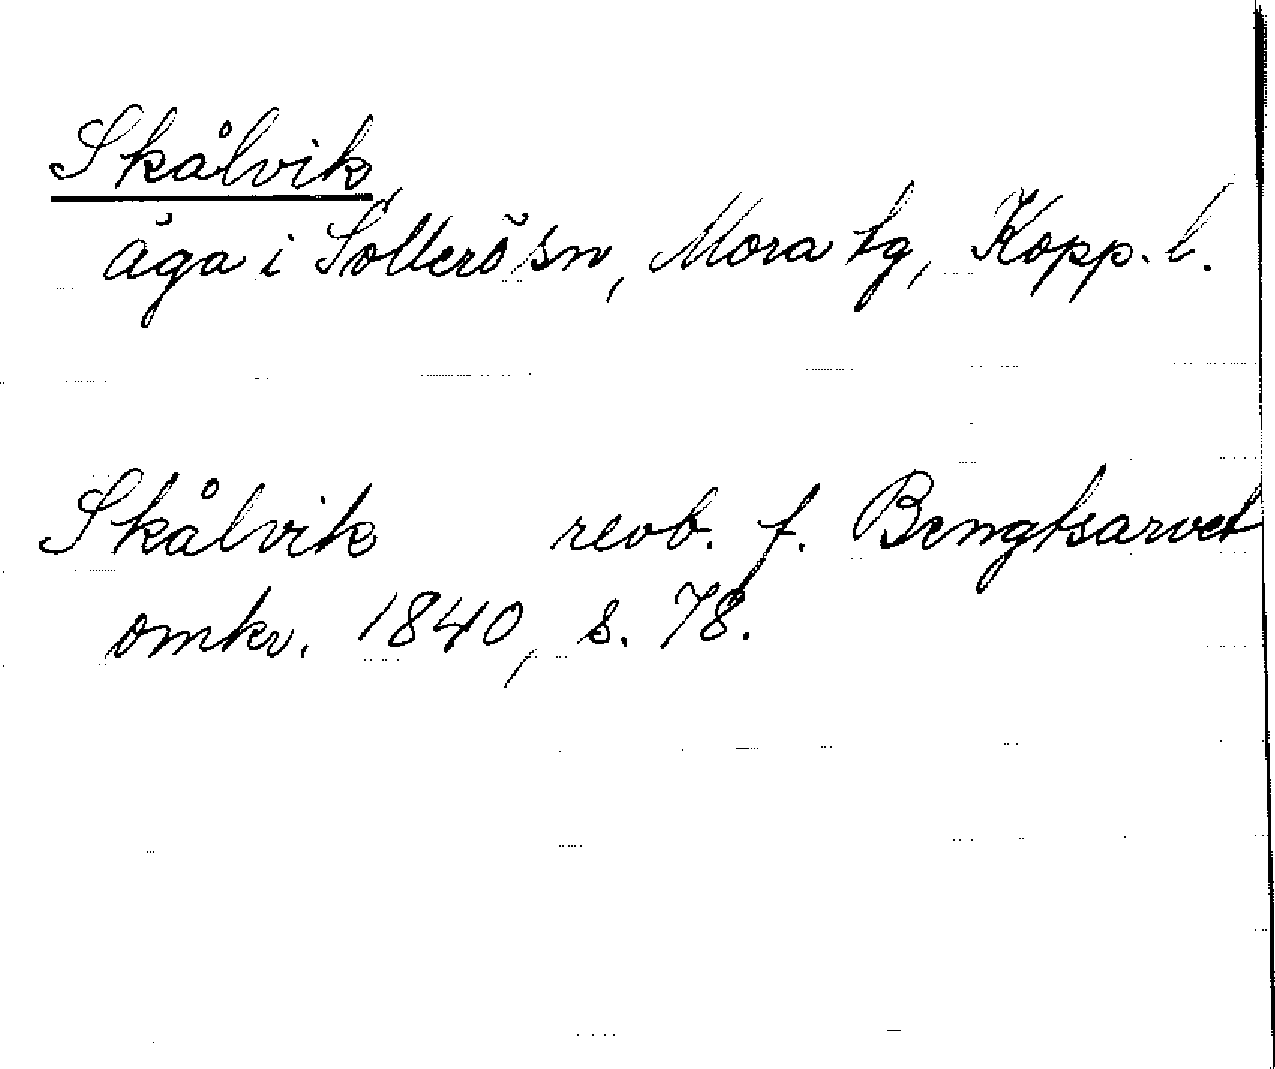 Skålvik,
äga i Sollerö sn, Mora tg, Kopp. l.
Skålvik revb. f. Bengtsarvet
omkr. 1840, s. 78.